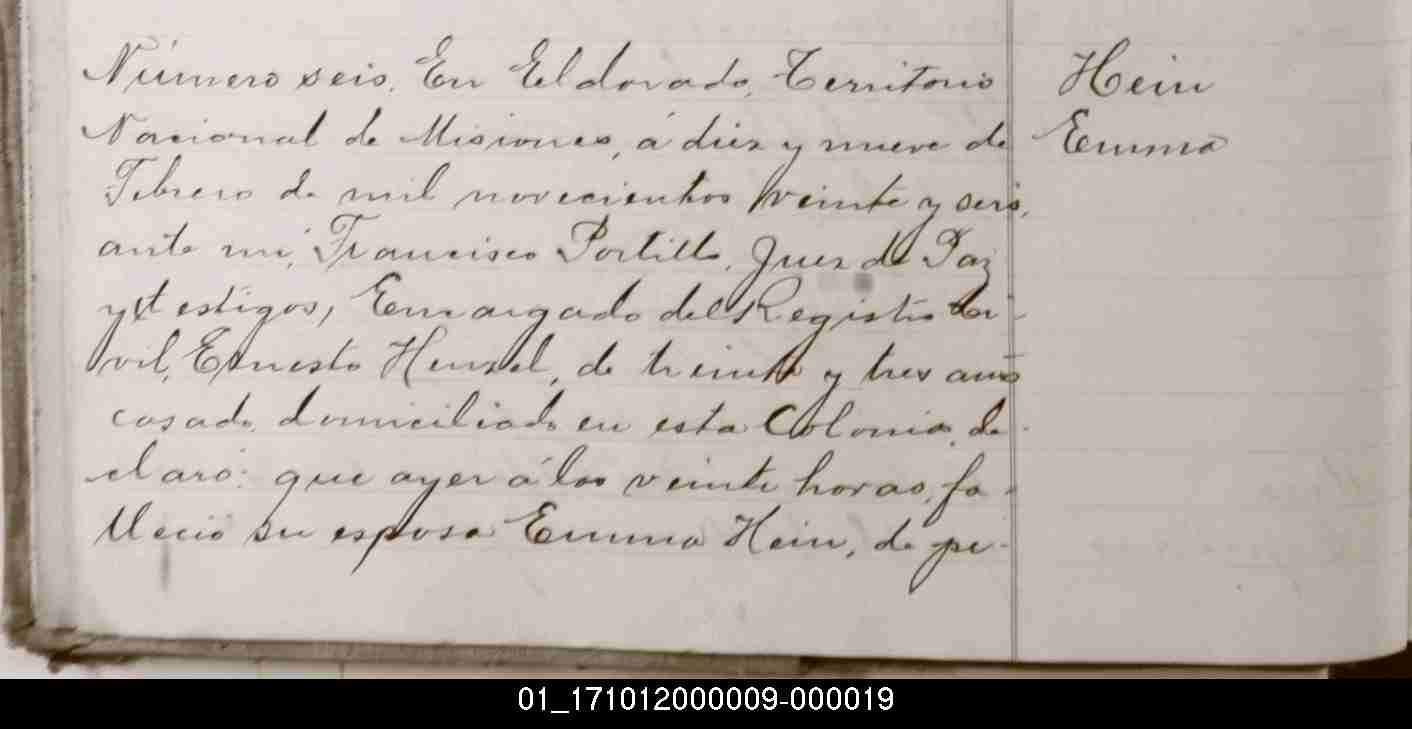 Número seis. En Eldorado, Territorio
Nacional de Misiones, á diez y nueve de
Febrero de mil novecientos veinte y seis,
ante mi, Francisco Portillo, Juez de Paz
y testigos, Encargado del Registro Ci-
vil, Ernesto Henzel, de treinta y tres años
casado, domiciliado en esta Colonia, de-
claró: que ayer á las veinte horas, fa-
lleció su esposa Emma Hein, de pe-
Hein
Emma
01_171012000009-000019